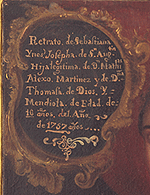 Retrato, de Sebastiana
Ynes Josepha, de S. Aug
Hija legitima, de D. Mathi
Alexo, Martinez y de D.ª
Thomasa, de Dios, Y
Mendiola, de Edad, de
16 años, del Año,
de 1757 años